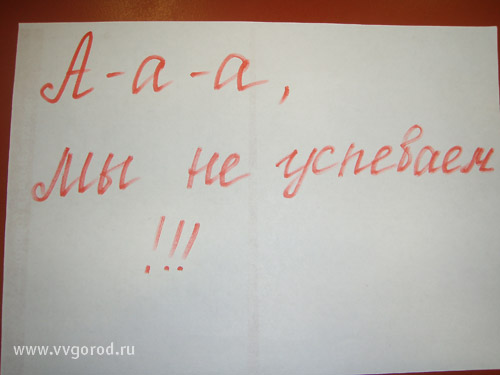 А-а-а,
Мы не успеваем
!!!
www.vvgorod.ru